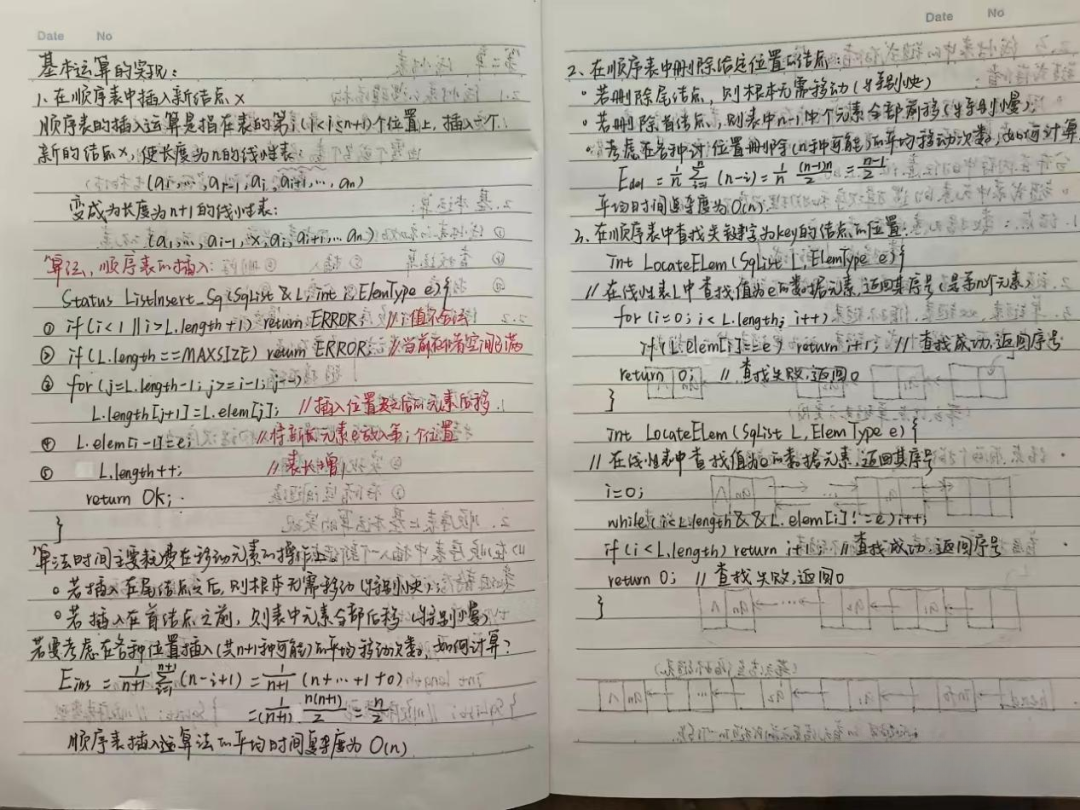 Date No
基本运算的实现：
1、在顺序表中插入新结点x
顺序表的插入运算是指在表的第i(1<i≤n+1)个位置上，插入一个
新的结点x，使长度为n的线性表：
(a1,…,ai-1,ai,ai+1,…,an)
变成为长度为n+1的线性表：
(a1,…,ai-1,x,ai,ai+1,…an)
算法、顺序表的插入：
Status ListInsert_Sq(SqList & L, int i, ElemType e){
① if(i<1||i>L.length+1) return ERROR; //i值不合法
② if(L.length==MAXSIZE) return ERROR; //当前存储空间已满
③ for(j=L.length-1; j>=i-1; j--)
L.length[j+1]=L.elem[j]; //插入位置及之后的元素后移
④ L.elem[i-1]=e; //将新元素e放入第i个位置
⑤ L.length++; //表长增1
return OK;
}
算法时间主要耗费在移动元素的操作上。
○若插入在尾结点之后，则根本无需移动（特别快）；
○若插入在首结点之前，则表中元素全部后移（特别慢）
若要考虑在各种位置插入（共n+1种可能）的平均移动次数，如何计算？
Eins = 1/(n+1) n+1∑i=1 (n-i+1) = 1/(n+1) (n+…+1+0)
=1/(n+1) n(n+1)/2 = n/2
顺序表插入运算法的平均时间复杂度为O(n)
Date No
2、在顺序表中删除给定位置的结点：
○若删除尾结点，则根本无需移动（特别快）
○若删除首结点，则表中n-1个元素全部前移（特别慢）；
○考虑在各种位置删除（n种可能）的平均移动次数，如何计算
Edel = 1/n n∑i=1 (n-i) = 1/n (n-1)n/2 = (n-1)/2
平均时间复杂度为O(n).
3、在顺序表中查找关键字为key的结点的位置：
int LocateElem(SqList L, ElemType e){
//在线性表L中查找值为e的数据元素，返回其序号（是第几个元素）
for(i=0; i<L.length; i++)
if(L.elem[i]==e) return i+1; //查找成功，返回序号
return 0; //查找失败，返回0
}
int LocateElem(SqList L, ElemType e){
//在线性表中查找值为e的数据元素，返回其序号
i=0;
while(i<L.length&&L.elem[i]!=e)i++;
if(i<L.length) return i+1; //查找成功，返回序号
return 0; //查找失败，返回0
}